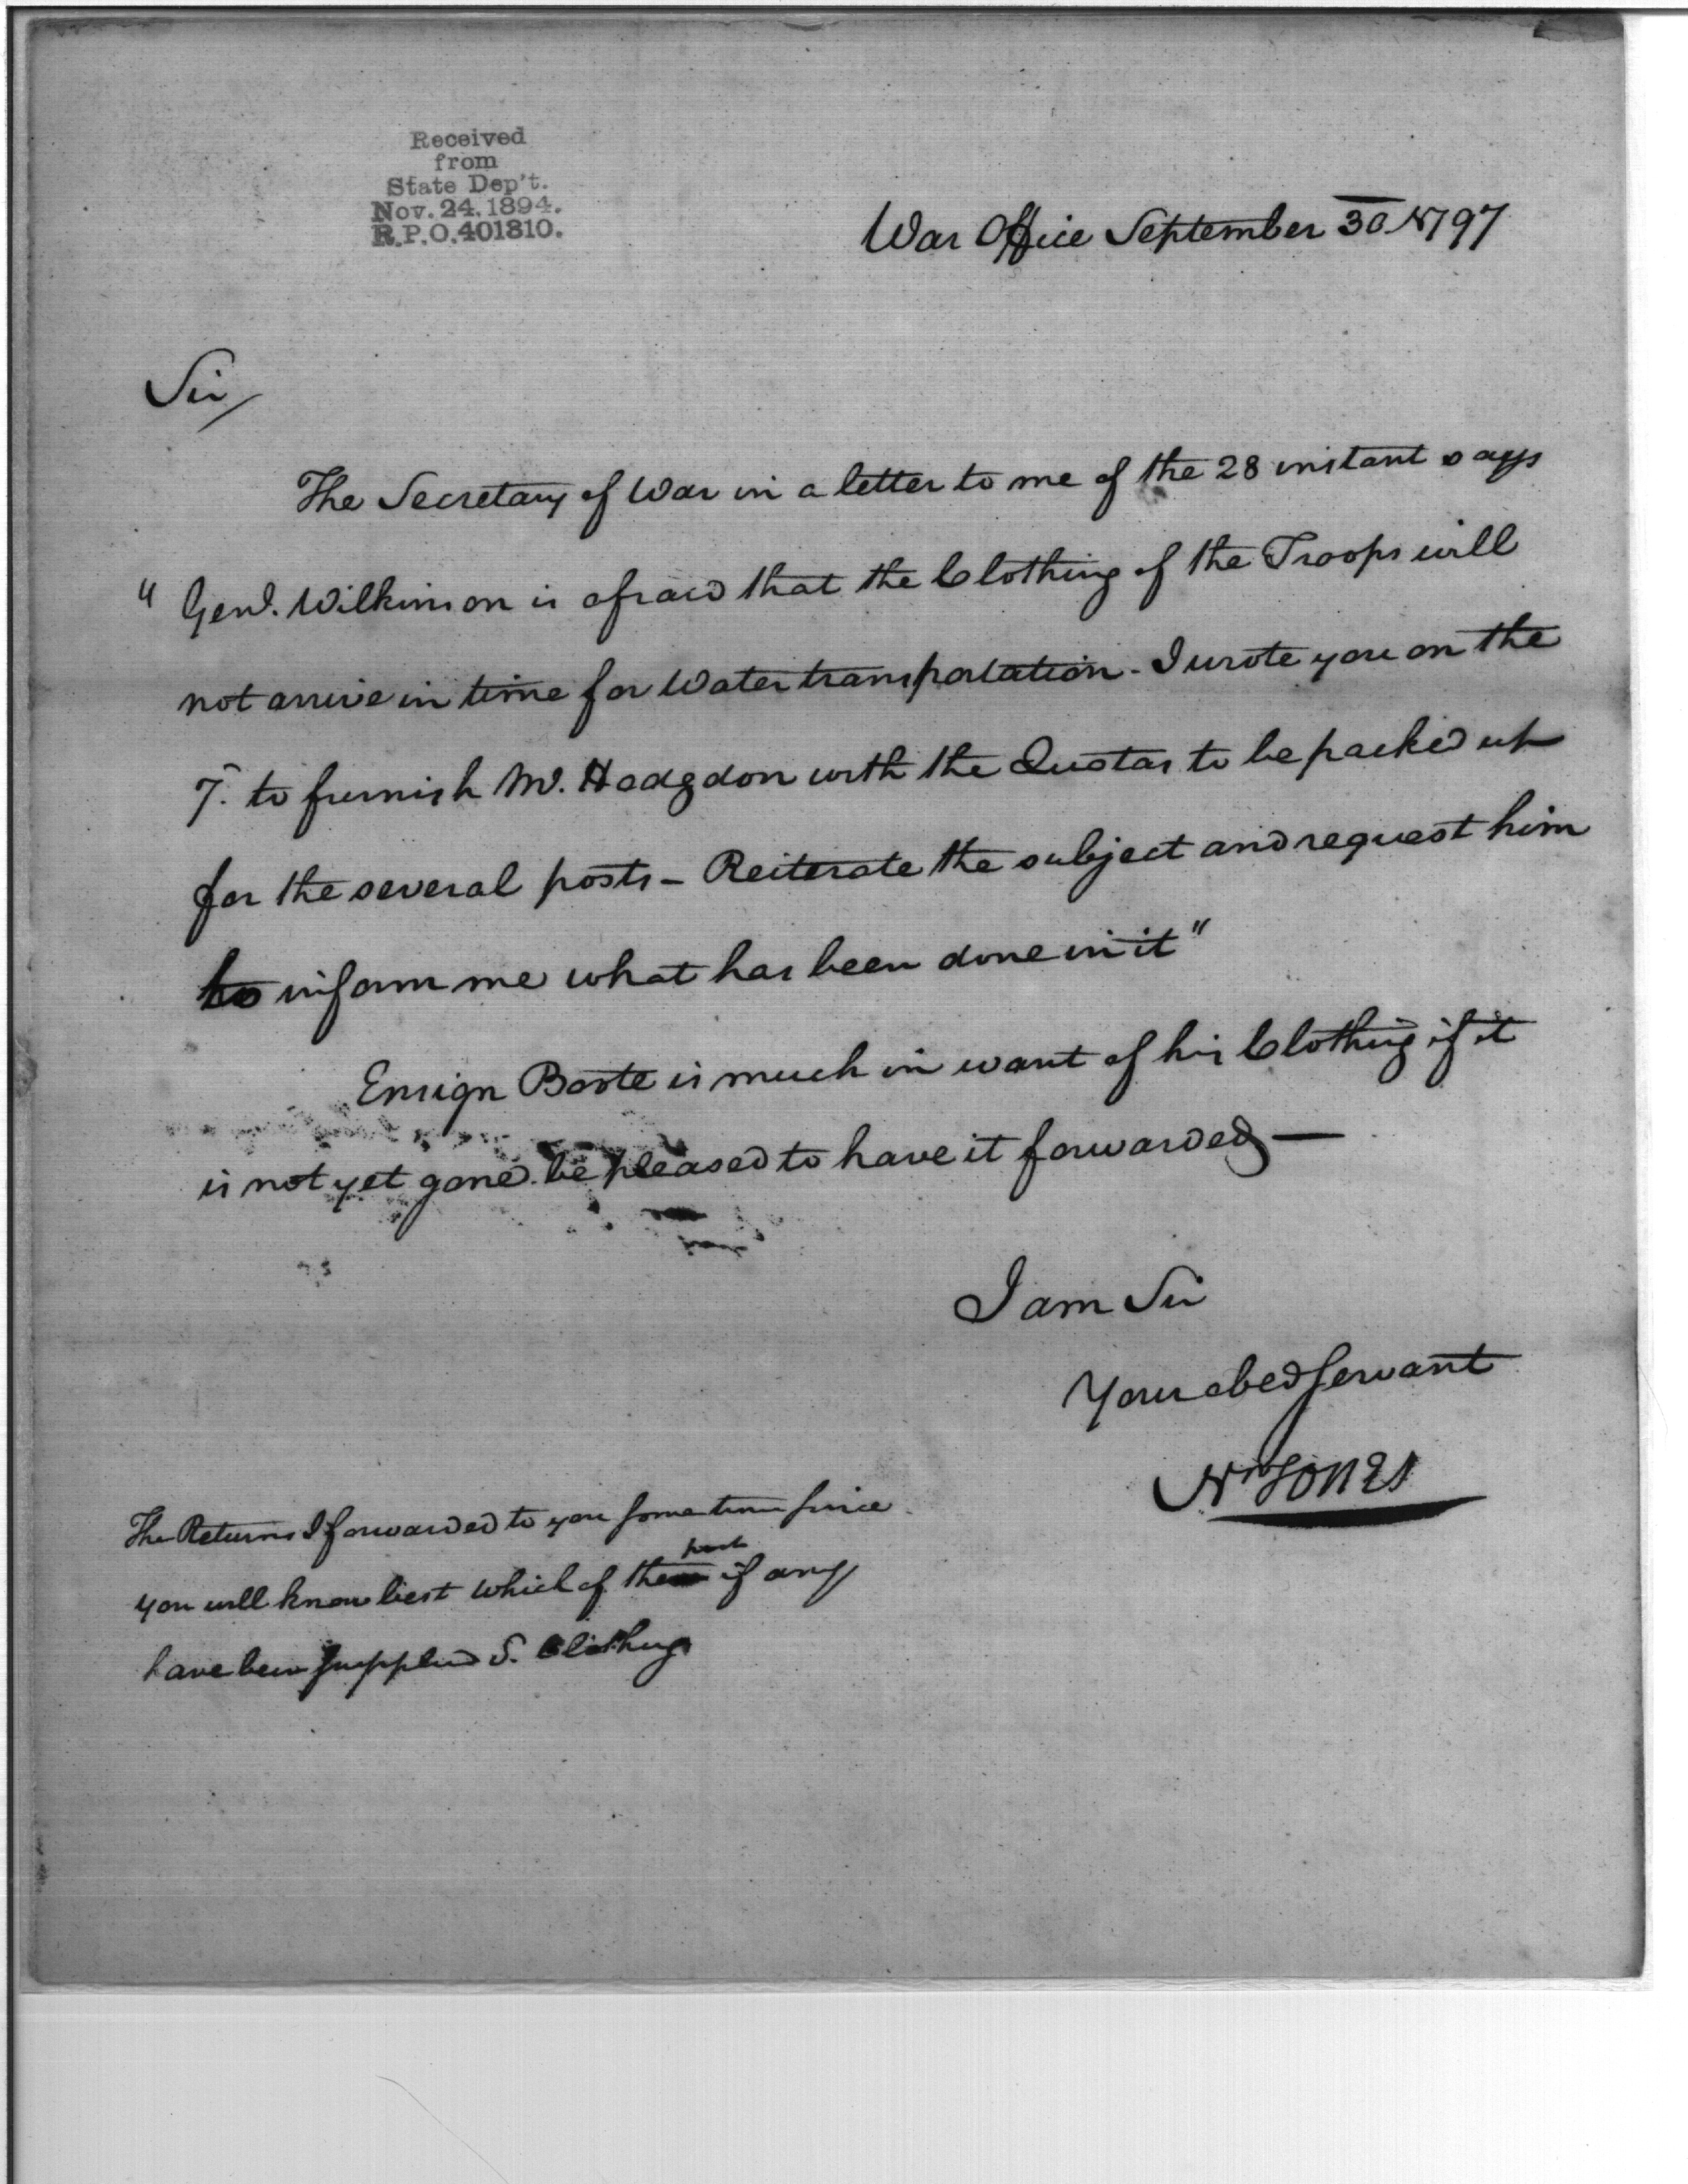 Received
from
State Dep't.
Nov. 24. 1894.
R.P.O. 401810.
War Office September 30 1797
Sir/
The Secretary of War in a letter to me of the 28 instant says
" Genl. Wilkinson is afraid that the Clothing of the Troops will
not arrive in time for Water transportation - I wrote you on the
7. to furnish Mr. Hodgdon with the Quotas to be packed up
for the several posts - Reiterate the subject and request him
to inform me what has been done in it"
Ensign Boste is much in want of his Clothing if it
is not yet gone be pleased to have it forwarded —
I am Sir
Your obed servant
Wm Jones
The Returns I forwarded to you some time since
you will know best which of the post if any
have been supplied S. Clothing